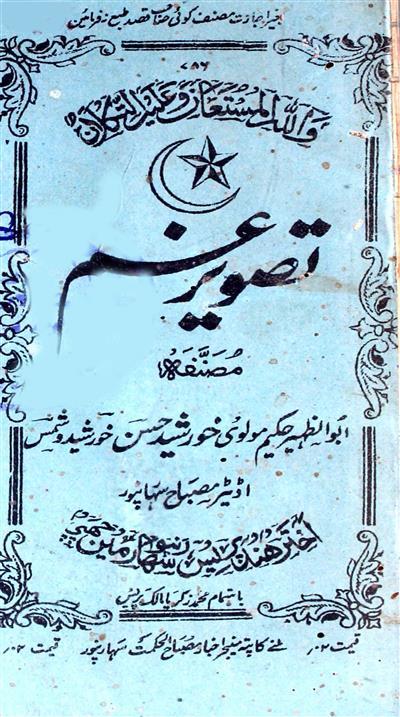 بغیر اجازت مصنف کوئی صاحب قصد طبع نہ فرمائیں
۷۸۶
واللہ المستعان و علیہ التکلان
تصویر غم
مصنفہ
ابوالظہیر حکیم مولوی خورشید حسن خورشید و شمس
اڈیٹر مصباح سہارنپور
اختر ہند پریس سہارنپور میں چھپی
باہتمام محمد زکریا مالک پریس
قیمت ۲؍ ملنے کا پتہ منیجر اخبار مصباح الحکمت سہارنپور قیمت ۲؍